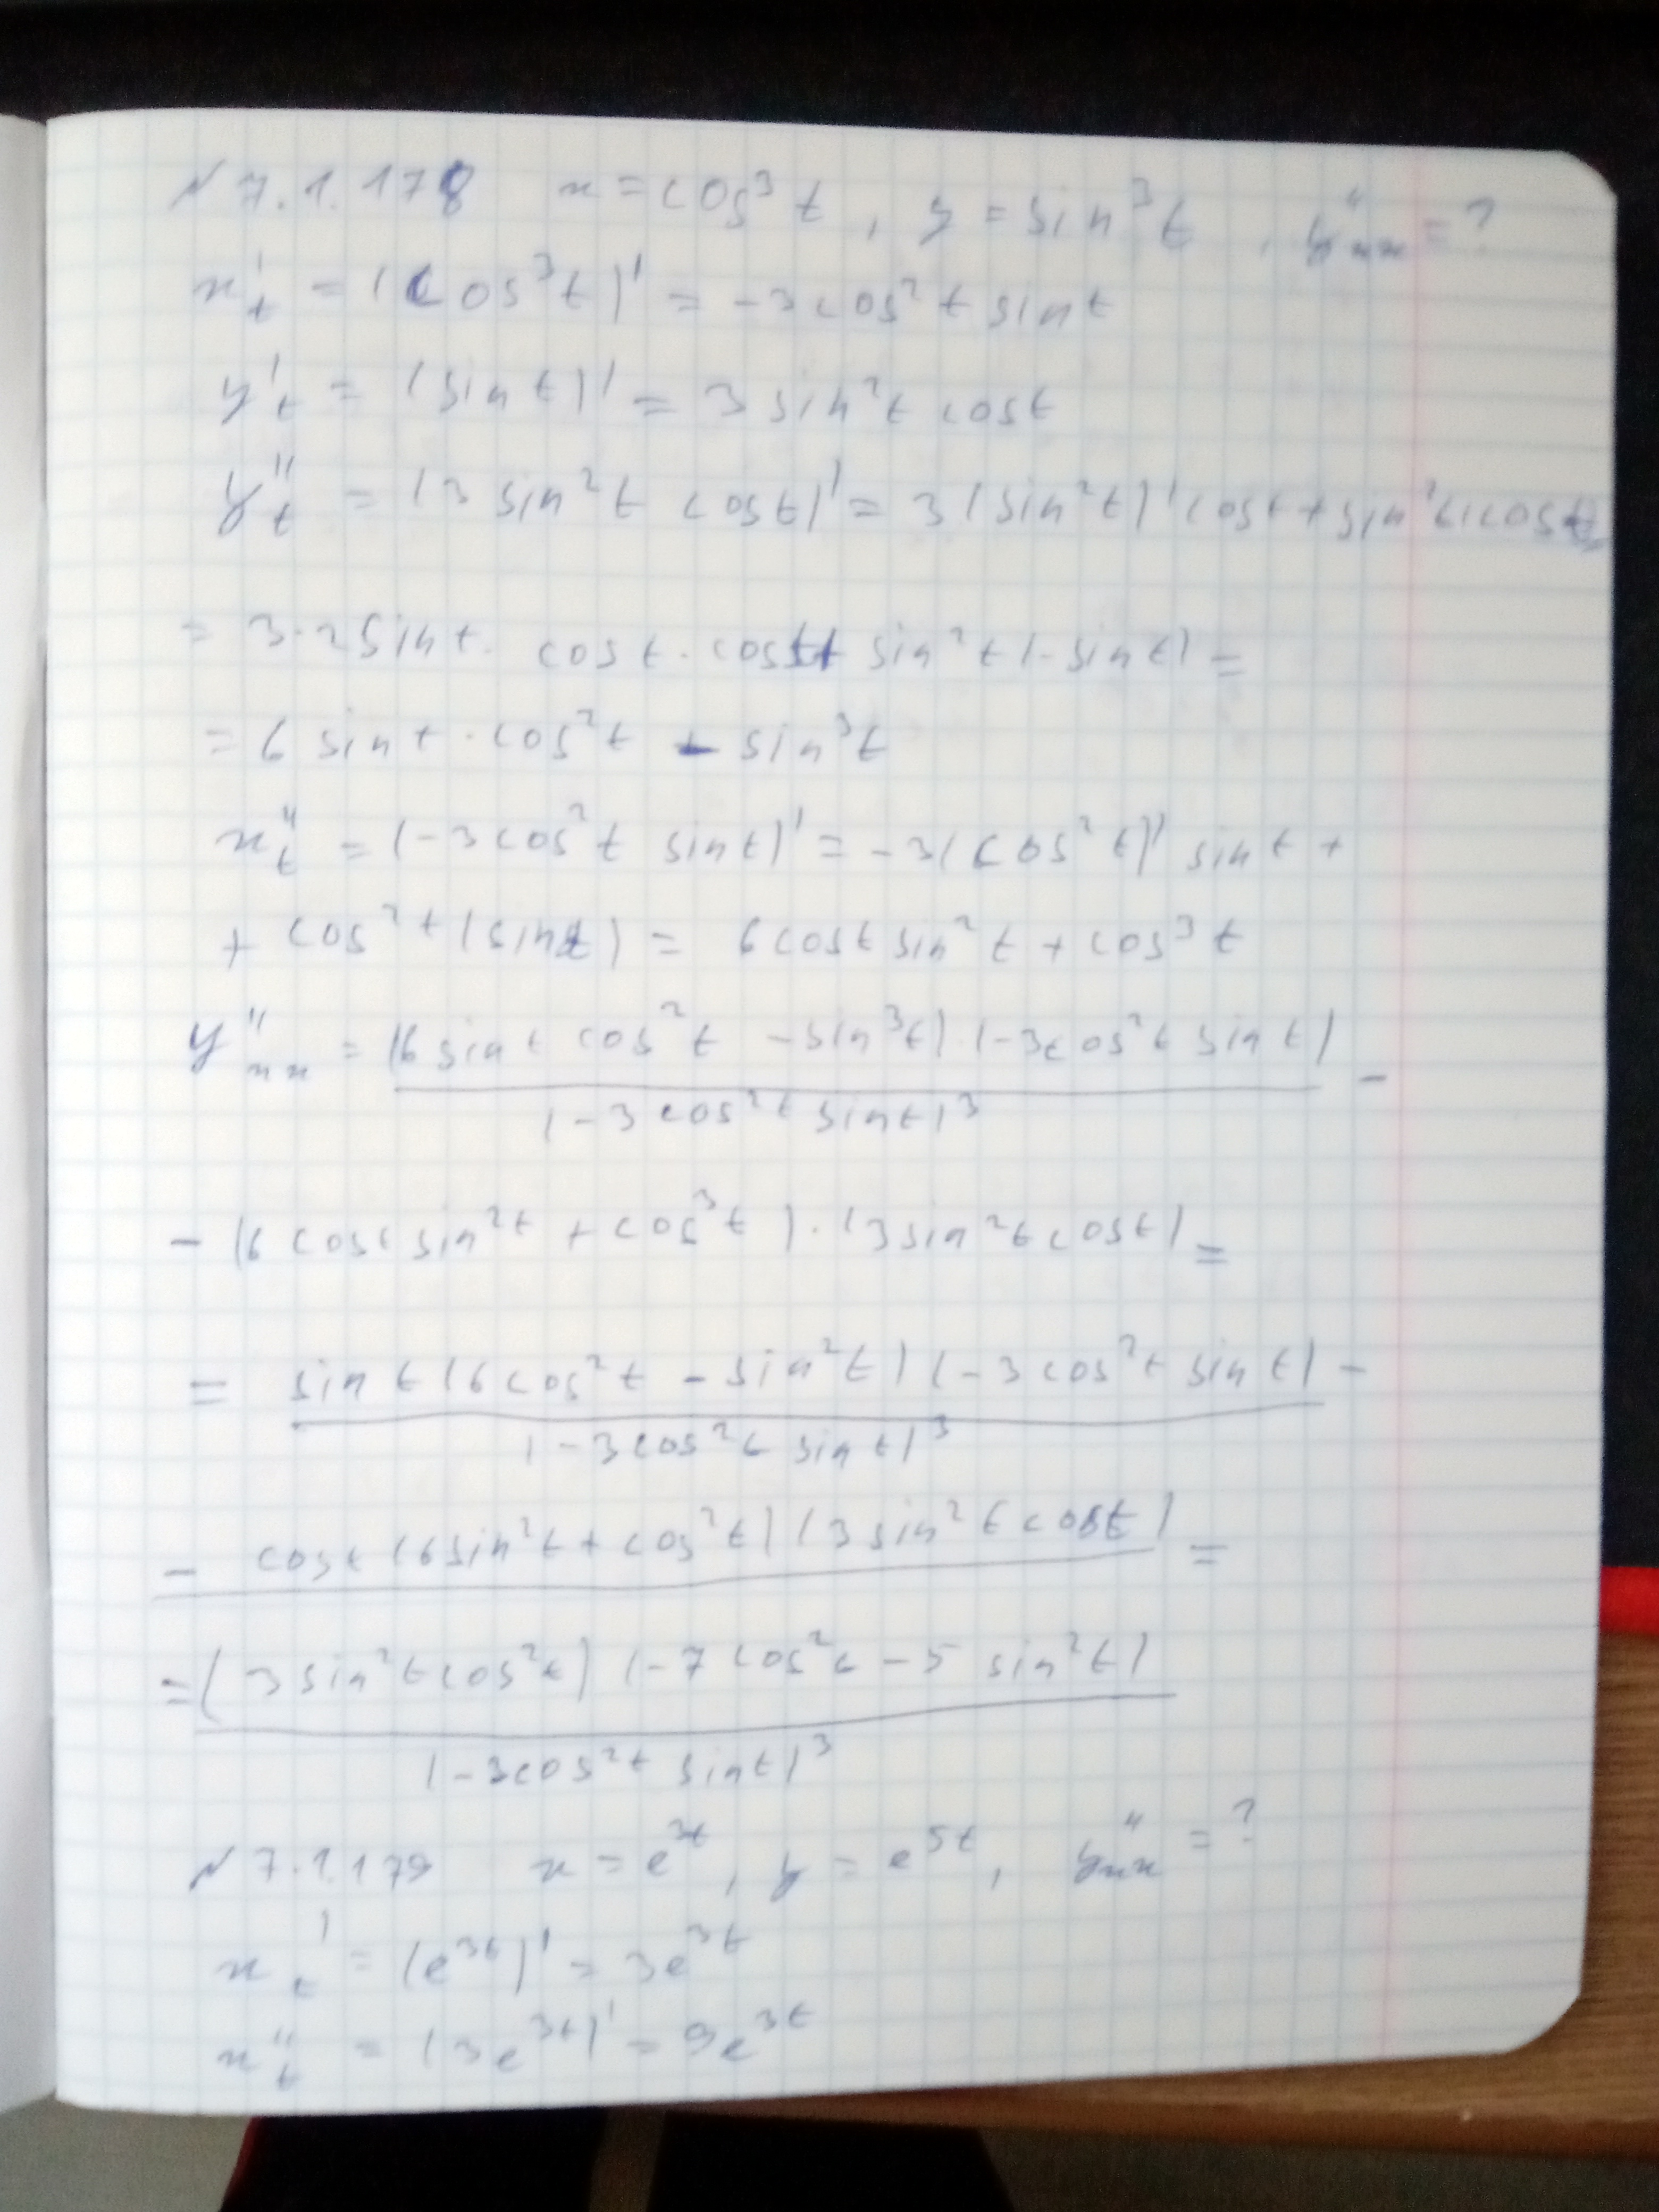 N 7.1.178 x = cos³t, y = sin³t, y''ₓₓ = ?
x'ₜ = (cos³t)' = -3cos²t sint
y'ₜ = (sin t)' = 3 sin²t cost
y''ₜ = (3 sin²t cost)' = 3(sin²t)' cost + sin²t(cost)
= 3·2sint· cost·cost + sin²t(-sint) =
= 6 sint·cos²t - sin³t
x''ₜ = (-3cos²t sint)' = -3(cos²t)' sint +
+ cos²t(sint) = 6cost sin²t + cos³t
y''ₓₓ = (6 sint cos²t - sin³t)·(-3cos²t sint) -
(-3cos²t sint)³
- (6 cost sin²t + cos³t)·(3sin²t cost) =
= sint(6cos²t - sin²t)(-3cos²t sint) -
(-3cos²t sint)³
- cost(6sin²t + cos²t)(3sin²t cost) =
= (3sin²t cos²t)(-7cos²t - 5 sin²t)
(-3cos²t sint)³
N 7.1.179 x = e³ᵗ, y = e⁵ᵗ, y''ₓₓ = ?
x'ₜ = (e³ᵗ)' = 3e³ᵗ
x''ₜ = (3e³ᵗ)' = 9e³ᵗ